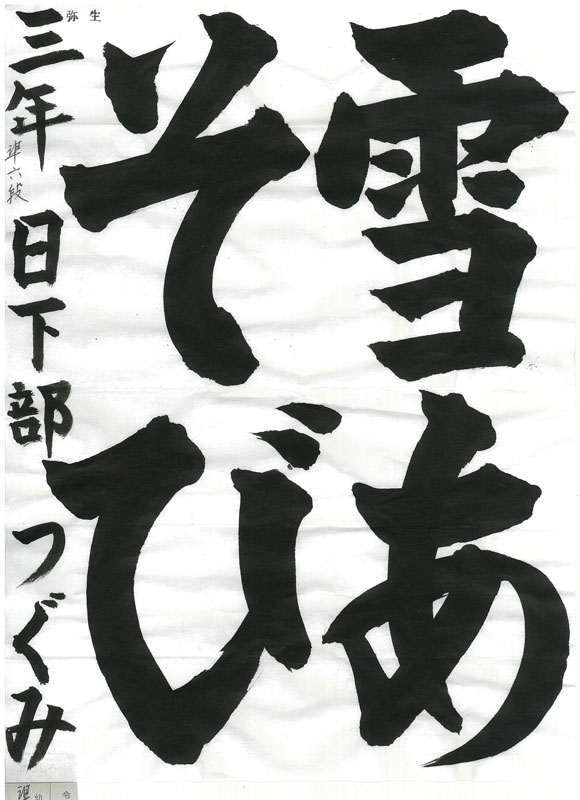 雪あ
そび
弥生
三年 準六段 日下部つぐみ
準 幼
令